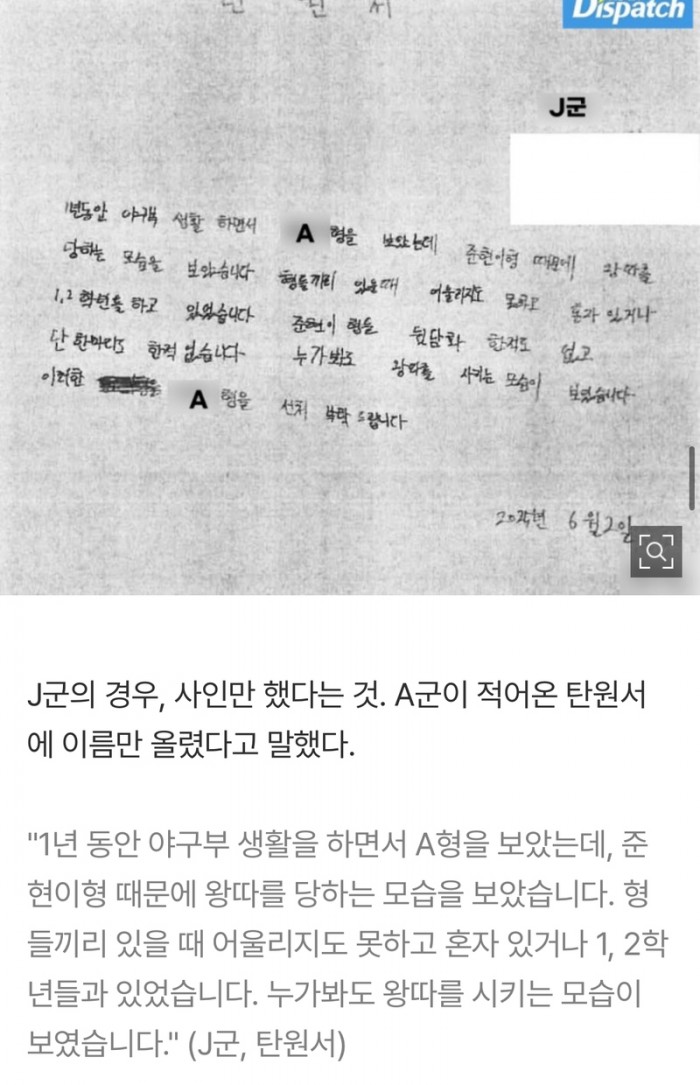 Dispatch
J군
1년동안 야구부 생활 하면서 A 형을 보았는데 준현이형 때문에 왕따를
당하는 모습을 보았습니다 형들끼리 있을때 어울리지도 못하고 혼자 있거나
1,2 학년들 하고 있었습니다 준현이 형을 뒷담화 한적도 없고
단 한마디도 한적 없습니다 누가봐도 왕따를 시키는 모습이 보였습니다
이러한 A 형을 선처 부탁 드립니다
6월 2일
J군의 경우, 사인만 했다는 것. A군이 적어온 탄원서
에 이름만 올렸다고 말했다.
"1년 동안 야구부 생활을 하면서 A형을 보았는데, 준
현이형 때문에 왕따를 당하는 모습을 보았습니다. 형
들끼리 있을 때 어울리지도 못하고 혼자 있거나 1, 2학
년들과 있었습니다. 누가봐도 왕따를 시키는 모습이
보였습니다." (J군, 탄원서)